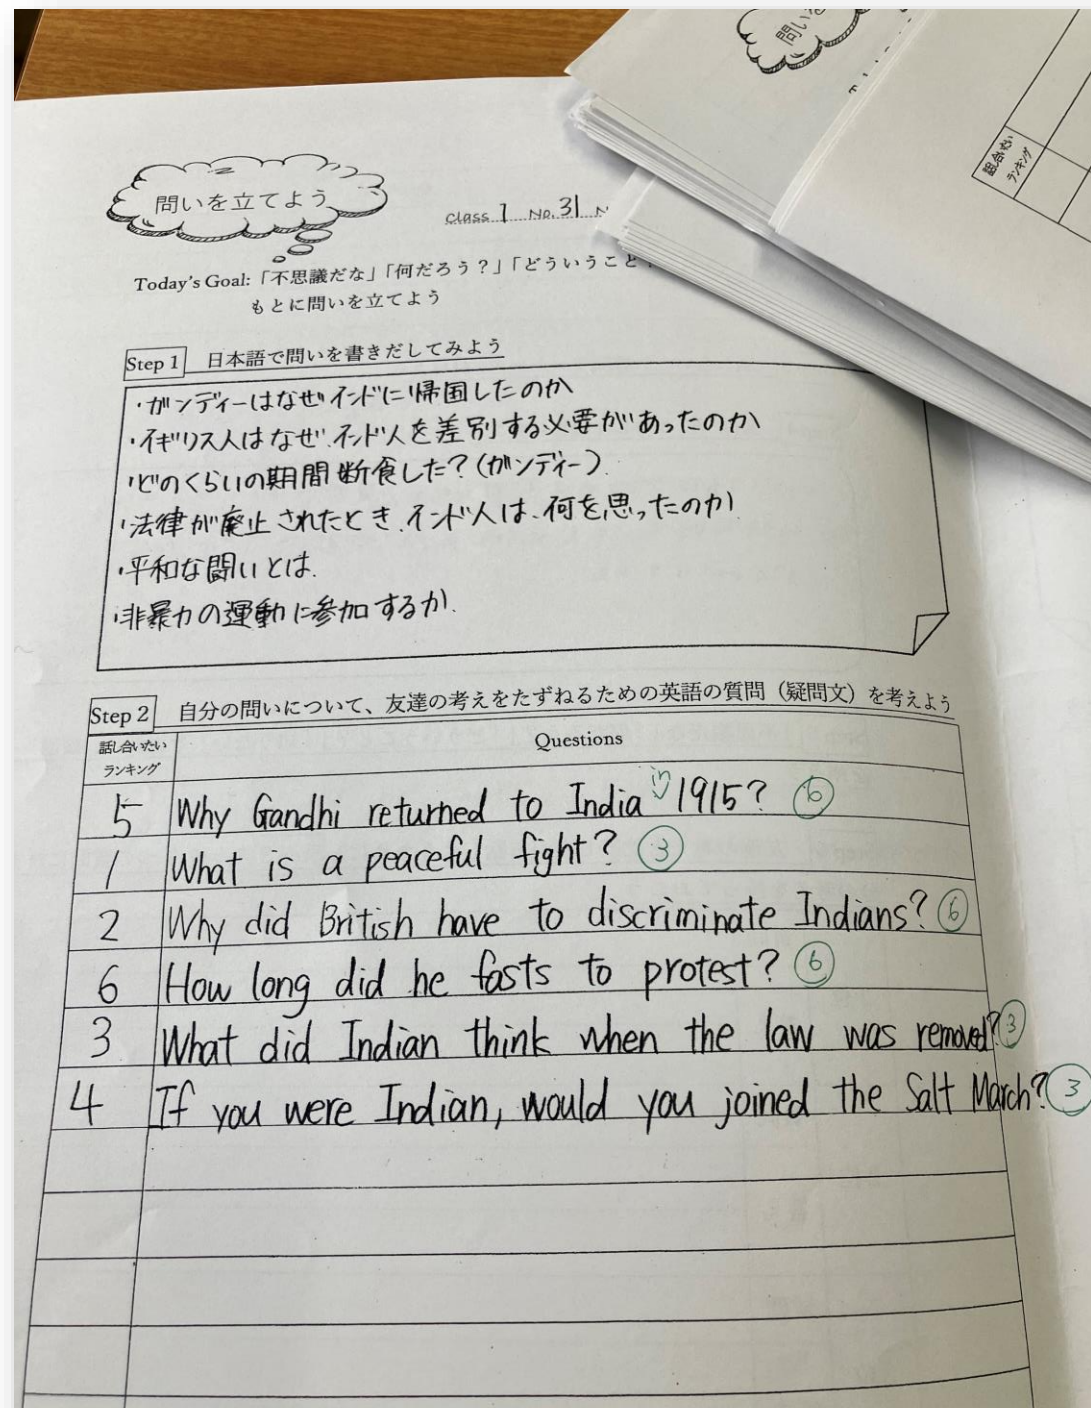 問いを立てよう
Class 1 No. 31 N
Today's Goal:「不思議だな」「何だろう？」「どういうこと
もとに問いを立てよう
Step 1 日本語で問いを書きだしてみよう
・ガンディーはなぜインドに帰国したのか
・イギリス人はなぜ、インド人を差別する必要があったのか
・どのくらいの期間断食した？(ガンディー)
・法律が廃止されたとき、インド人は、何を思ったのか
・平和な闘いとは.
・非暴力の運動に参加するか.
Step 2 自分の問いについて、友達の考えをたずねるための英語の質問（疑問文）を考えよう
話し合いたいランキング Questions
5 Why Gandhi returned to India in 1915? 6
1 What is a peaceful fight? 3
2 Why did British have to discriminate Indians? 6
6 How long did he fasts to protest? 6
3 What did Indian think when the law was removed? 3
4 If you were Indian, would you joined the Salt March? 3
問い
話し合いたい
ランキング